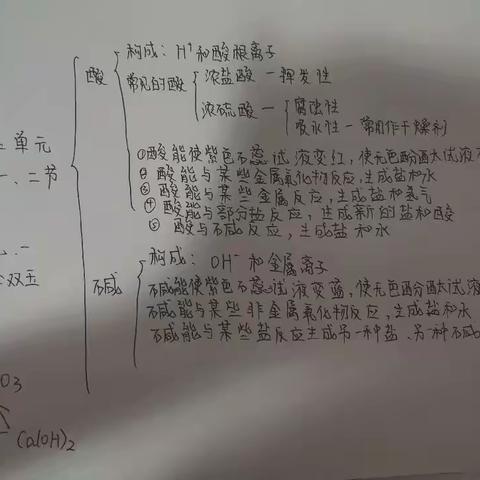 构成：H⁺和酸根离子
酸
常见的酸
浓盐酸 — 挥发性
浓硫酸 —
腐蚀性
吸水性 — 常用作干燥剂
①酸能使紫色石蕊试液变红，使无色酚酞试液不
②酸能与某些金属氧化物反应，生成盐和水
③酸能与某些金属反应，生成盐和氢气
④酸能与部分盐反应，生成新的盐和酸
⑤酸与碱反应，生成盐和水
单元
一、二节
双五
构成：OH⁻和金属离子
碱
碱能使紫色石蕊试液变蓝，使无色酚酞试液
碱能与某些非金属氧化物反应，生成盐和水
碱能与某些盐反应生成另一种盐、另一种碱
O₃
Ca(OH)₂